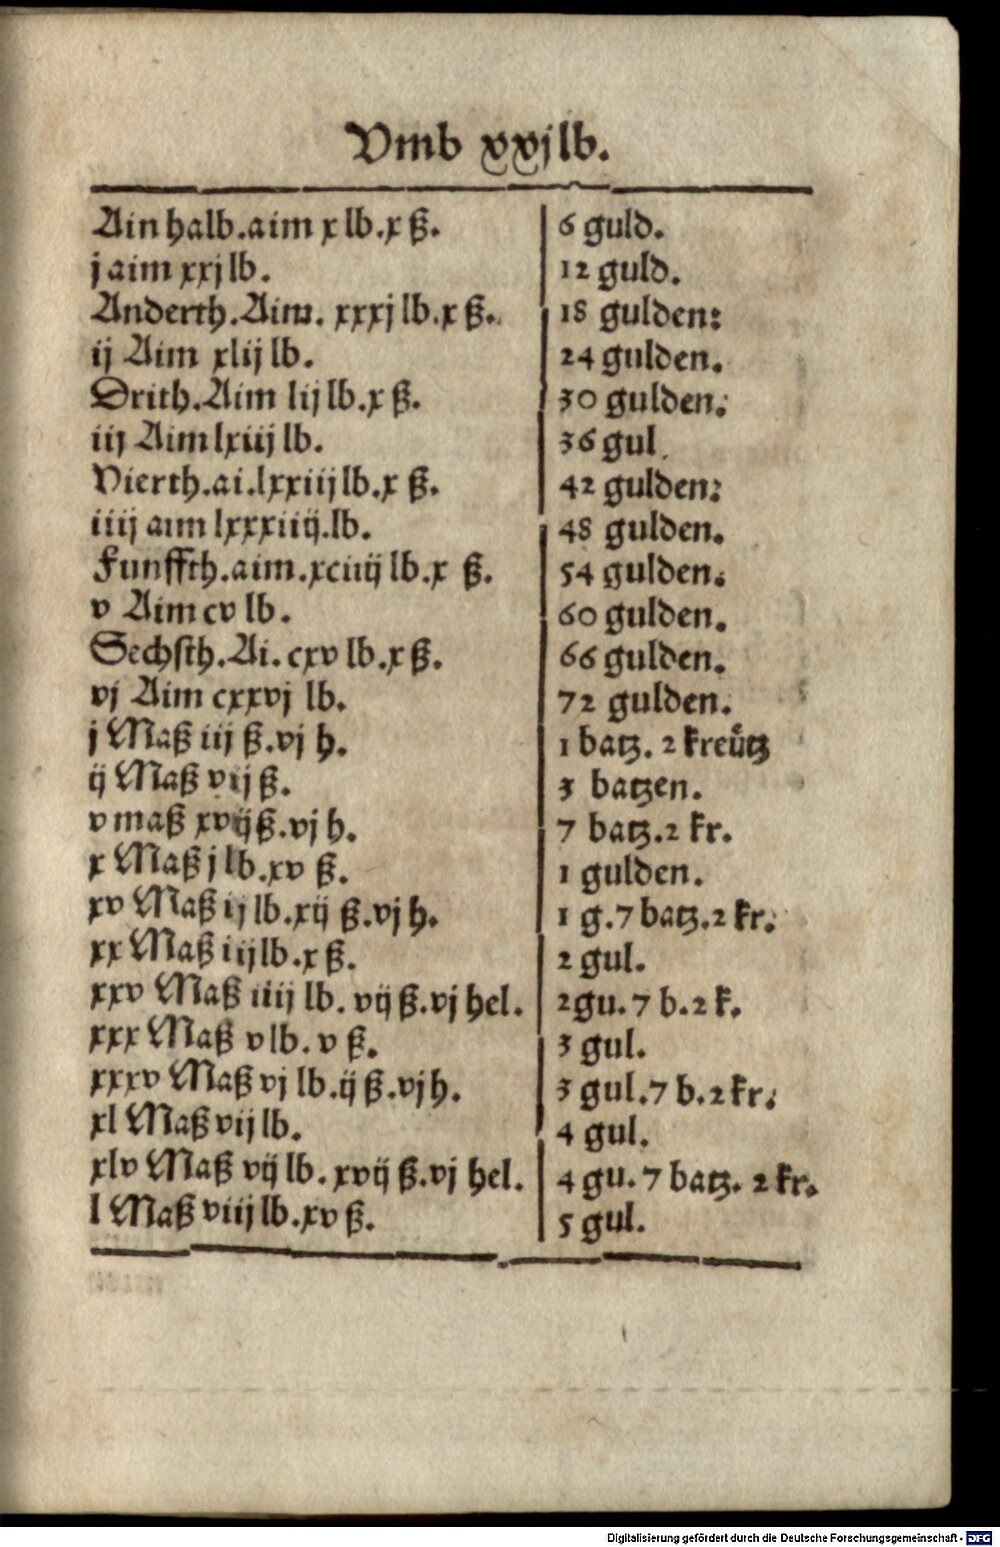 Vmb xxj lb.
Ain halb. aim x lb. x ß. 6 guld.
j aim xxj lb. 12 guld.
Anderth. Aim. xxxj lb. x ß. 18 gulden:
ij Aim xlij lb. 24 gulden.
Drith. Aim lij lb. x ß. 30 gulden.
iij Aim lxiij lb. 36 gul.
Vierth. ai. lxxiij lb. x ß. 42 gulden:
iiij aim lxxxiiij. lb. 48 gulden.
Funffth. aim. xciiij lb. x ß. 54 gulden.
v Aim cv lb. 60 gulden.
Sechsth. Ai. cxv lb. x ß. 66 gulden.
vj Aim cxxvj lb. 72 gulden.
j Maß iij ß. vj h. 1 batz. 2 kreütz
ij Maß vij ß. 3 batzen.
v maß xvij ß. vj h. 7 batz. 2 kr.
x Maß j lb. xv ß. 1 gulden.
xv Maß ij lb. xij ß. vj h. 1 g. 7 batz. 2 kr.
xx Maß iij lb. x ß. 2 gul.
xxv Maß iiij lb. vij ß. vj hel. 2 gu. 7 b. 2 k.
xxx Maß v lb. v ß. 3 gul.
xxxv Maß vj lb. ij ß. vj h. 3 gul. 7 b. 2 kr.
xl Maß vij lb. 4 gul.
xlv Maß vij lb. xvij ß. vj hel. 4 gu. 7 batz. 2 kr.
l Maß viij lb. xv ß. 5 gul.
Digitalisierung gefördert durch die Deutsche Forschungsgemeinschaft - DFG